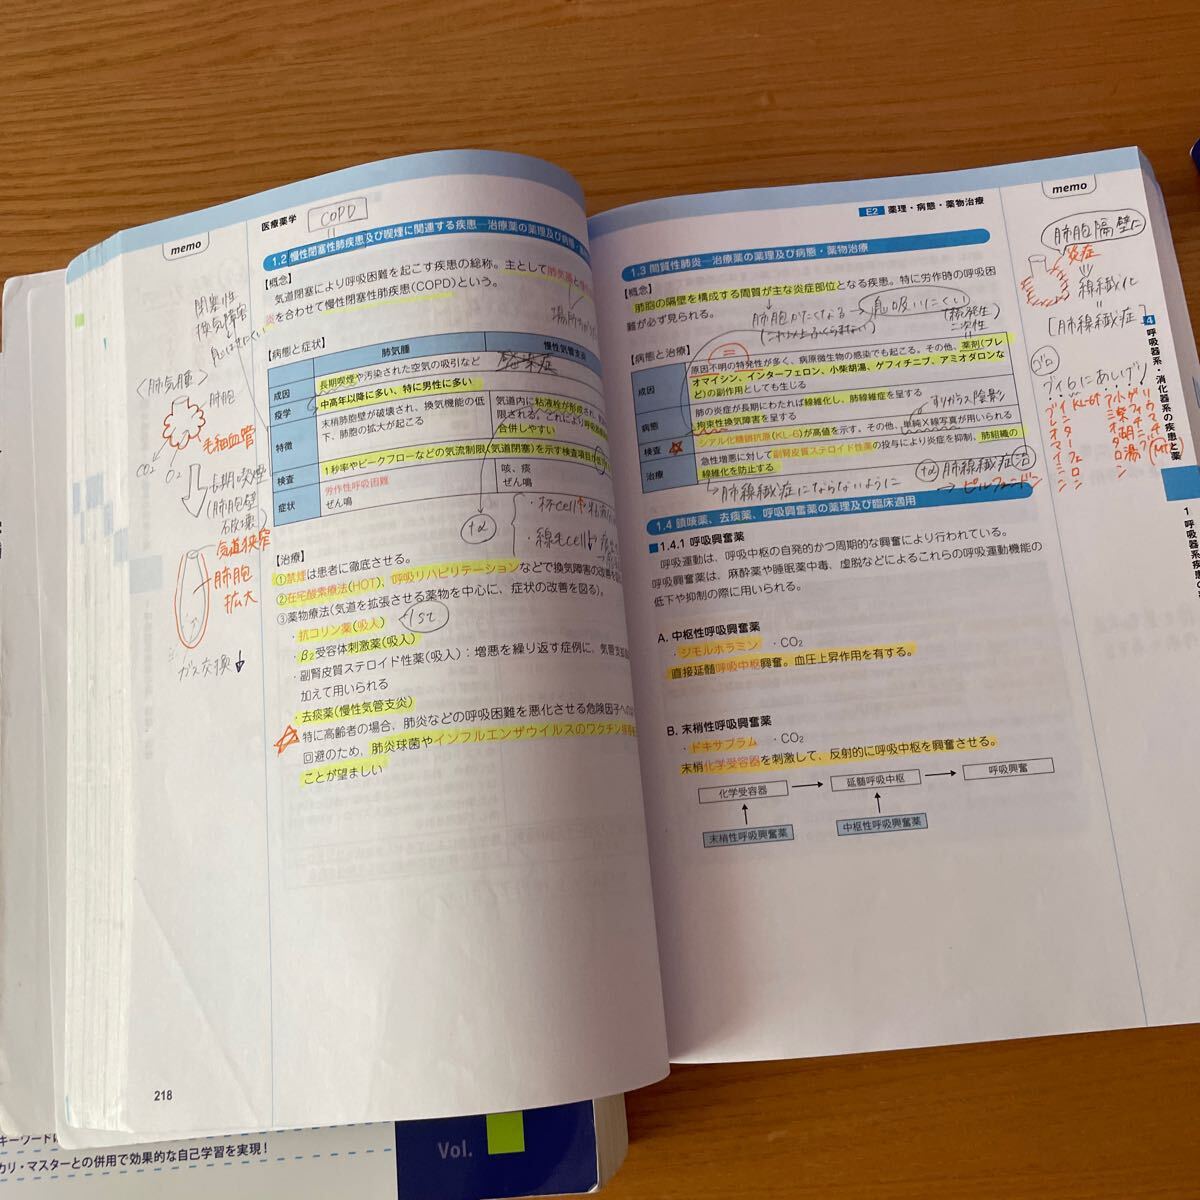 memo
医療薬学
COPD
1.2 慢性閉塞性肺疾患及び喫煙に関連する疾患─治療薬の薬理及び病態・
【概念】
気道閉塞により呼吸困難を起こす疾患の総称。主として肺気腫と
炎を合わせて慢性閉塞性肺疾患(COPD)という。
【病態と症状】
肺気腫
慢性気管支炎
成因
長期喫煙や汚染された空気の吸引など
感染症
疫学
中高年以降に多い、特に男性に多い
特徴
末梢肺胞壁が破壊され、換気機能の低
下、肺胞の拡大が起こる
気道内に粘液栓が形成され、
限される。これにより呼吸
合併しやすい
検査
1秒率やピークフローなどの気流制限(気道閉塞)を示す検査項目が
症状
労作性呼吸困難
ぜん鳴
咳、痰
ぜん鳴
+α
・杯cell↑
・線毛cell↓
【治療】
①禁煙は患者に徹底させる。
②在宅酸素療法(HOT)、呼吸リハビリテーションなどで換気障害の改善を
③薬物療法(気道を拡張させる薬物を中心に、症状の改善を図る)。
・抗コリン薬(吸入)
1st
・β2受容体刺激薬(吸入)
・副腎皮質ステロイド性薬(吸入)：増悪を繰り返す症例に、気管支拡
加えて用いられる
・去痰薬(慢性気管支炎)
特に高齢者の場合、肺炎などの呼吸困難を悪化させる危険因子への
回避のため、肺炎球菌やインフルエンザウイルスのワクチン接種を
ことが望ましい
閉塞性
換気障害
〈肺気腫〉
肺胞
毛細血管
CO2
O2
長期喫煙
(肺胞壁
破壊)
気道狭窄
肺胞
拡大
ガス交換↓
218
memo
E2 薬理・病態・薬物治療
1.3 間質性肺炎─治療薬の薬理及び病態・薬物治療
【概念】
肺胞の隔壁を構成する間質が主な炎症部位となる疾患。特に労作時の呼吸困
難が必ず見られる。
肺胞がかたくなる→息吸いにくい
【病態と治療】
(特発生)
二次性
成因
原因不明の特発性が多く、病原微生物の感染でも起こる。その他、薬剤(ブレ
オマイシン、インターフェロン、小柴胡湯、ゲフィチニブ、アミオダロンな
ど)の副作用としても生じる
病態
肺の炎症が長期にわたれば線維化し、肺線維症を呈する
拘束性換気障害を呈する
すりガラス陰影
検査
シアル化糖鎖抗原(KL-6)が高値を示す。その他、単純X線写真が用いられる
治療
急性増悪に対して副腎皮質ステロイド性薬の投与により炎症を抑制、肺組織の
線維化を防止する
肺線維症にならないように
+α 肺線維症 治
→ピルフェニドン
1.4 鎮咳薬、去痰薬、呼吸興奮薬の薬理及び臨床適用
1.4.1 呼吸興奮薬
呼吸運動は、呼吸中枢の自発的かつ周期的な興奮により行われている。
呼吸興奮薬は、麻酔薬や睡眠薬中毒、虚脱などによるこれらの呼吸運動機能の
低下や抑制の際に用いられる。
A. 中枢性呼吸興奮薬
・ジモルホラミン ・CO2
直接延髄呼吸中枢興奮。血圧上昇作用を有する。
B. 末梢性呼吸興奮薬
・ドキサプラム ・CO2
末梢化学受容器を刺激して、反射的に呼吸中枢を興奮させる。
化学受容器
延髄呼吸中枢
呼吸興奮
末梢性呼吸興奮薬
中枢性呼吸興奮薬
肺胞隔壁に
炎症
線維化
[肺線維症]
ゴロ
KL-6
4
呼吸器系・消化器系の疾患と薬
1
呼吸器系疾患の
キーワードに
カリ・マスターとの併用で効果的な自己学習を実現！
Vol.